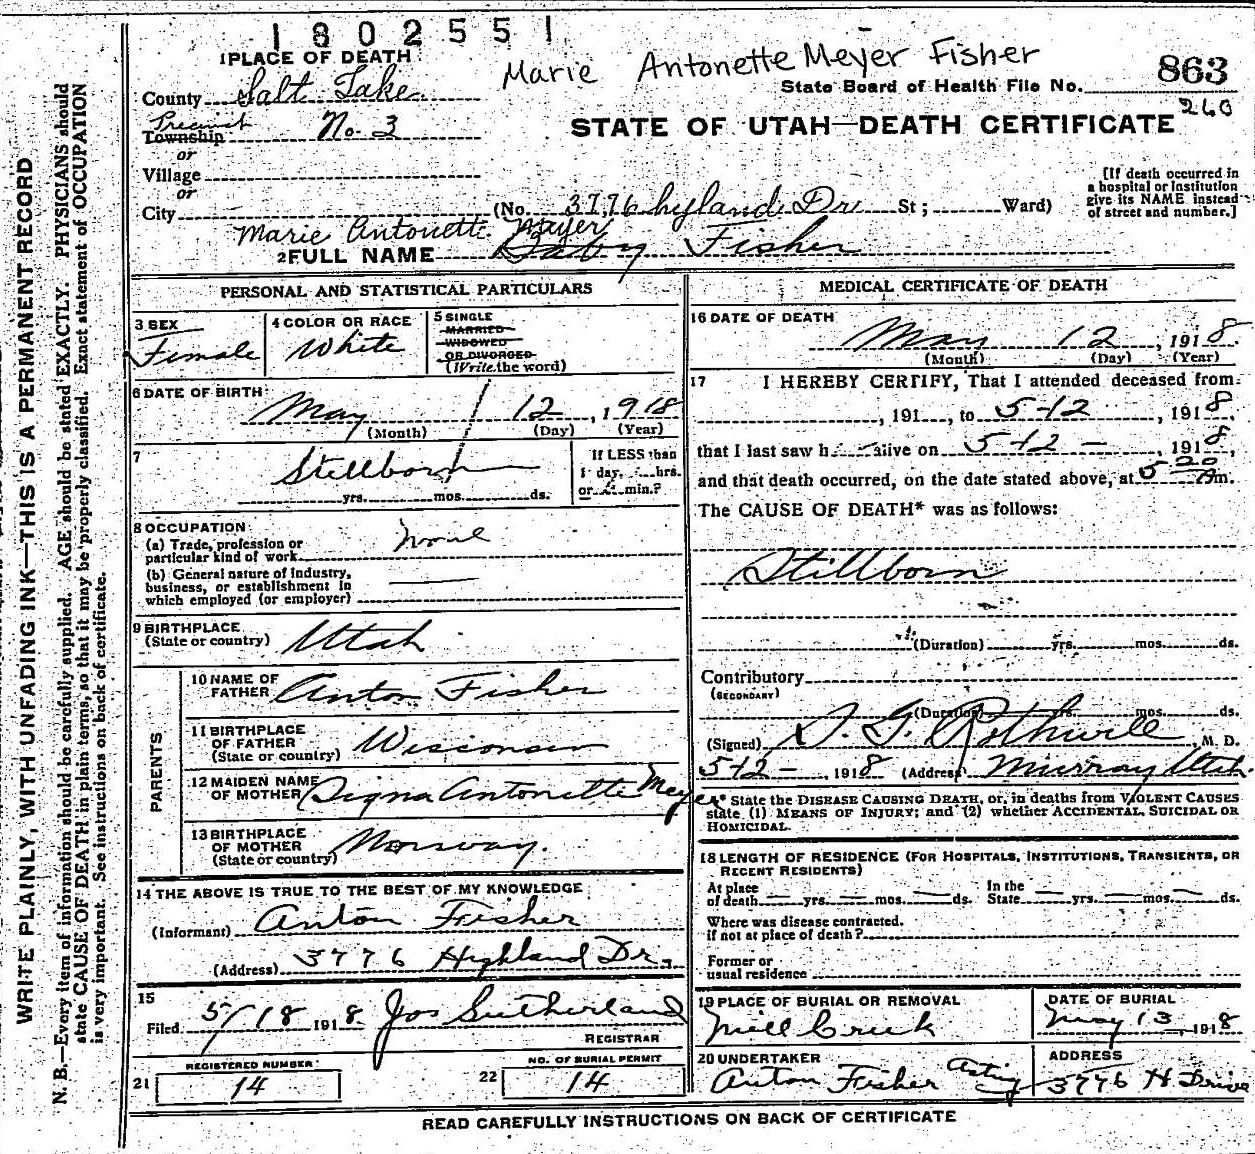 1802551
1 PLACE OF DEATH
Marie Antonette Meyer Fisher
863
State Board of Health File No.
260
County Salt Lake
Precinct
Township No. 3
or
STATE OF UTAH—DEATH CERTIFICATE
Village
or
City
(No. 3776 hyland Dr St; Ward)
[If death occurred in
a hospital or institution
give its NAME instead
of street and number.]
Marie Antonette Mayer
2 FULL NAME Baby Fisher
PERSONAL AND STATISTICAL PARTICULARS
3 SEX
Female
4 COLOR OR RACE
White
5 SINGLE
MARRIED
WIDOWED
OR DIVORCED
(Write the word)
6 DATE OF BIRTH
May 12, 1918
(Month) (Day) (Year)
7
Stillborn
yrs. mos. ds.
If LESS than
1 day, hrs.
or min.?
8 OCCUPATION
(a) Trade, profession or
particular kind of work None
(b) General nature of industry,
business, or establishment in
which employed (or employer)
9 BIRTHPLACE
(State or country) Utah
PARENTS
10 NAME OF
FATHER Anton Fisher
11 BIRTHPLACE
OF FATHER
(State or country) Wisconsin
12 MAIDEN NAME
OF MOTHER Signa Antonette Meyer
13 BIRTHPLACE
OF MOTHER
(State or country) Norway.
14 THE ABOVE IS TRUE TO THE BEST OF MY KNOWLEDGE
(Informant) Anton Fisher
(Address) 3776 Highland Dr.
15
Filed 5/18 1918 Jos Sutherland
REGISTRAR
21
REGISTERED NUMBER
14
22
NO. OF BURIAL PERMIT
14
MEDICAL CERTIFICATE OF DEATH
16 DATE OF DEATH
May 12, 1918
(Month) (Day) (Year)
17 I HEREBY CERTIFY, That I attended deceased from
, 191 , to 5-12, 1918
that I last saw h alive on 5-12-, 1918,
and that death occurred, on the date stated above, at 5 20 A m.
The CAUSE OF DEATH* was as follows:
Stillborn
(Duration) yrs. mos. ds.
Contributory
(SECONDARY)
(Duration) yrs. mos. ds.
(Signed) Rothwell, M. D.
5-12-, 1918 (Address) Murray Utah.
* State the DISEASE CAUSING DEATH, or, in deaths from VIOLENT CAUSES
state (1) MEANS OF INJURY; and (2) whether ACCIDENTAL, SUICIDAL OR
HOMICIDAL.
18 LENGTH OF RESIDENCE (FOR HOSPITALS, INSTITUTIONS, TRANSIENTS, OR
RECENT RESIDENTS)
At place
of death yrs. mos. ds.
In the
State yrs. mos. ds.
Where was disease contracted.
if not at place of death?
Former or
usual residence
19 PLACE OF BURIAL OR REMOVAL
Mill Creek
DATE OF BURIAL
May 13, 1918
20 UNDERTAKER
Anton Fisher Acting
ADDRESS
3776 H Drive
READ CAREFULLY INSTRUCTIONS ON BACK OF CERTIFICATE
WRITE PLAINLY, WITH UNFADING INK—THIS IS A PERMANENT RECORD
N. B.—Every item of information should be carefully supplied. AGE should be stated EXACTLY. PHYSICIANS should
state CAUSE OF DEATH in plain terms, so that it may be properly classified. Exact statement of OCCUPATION
is very important. See instructions on back of certificate.